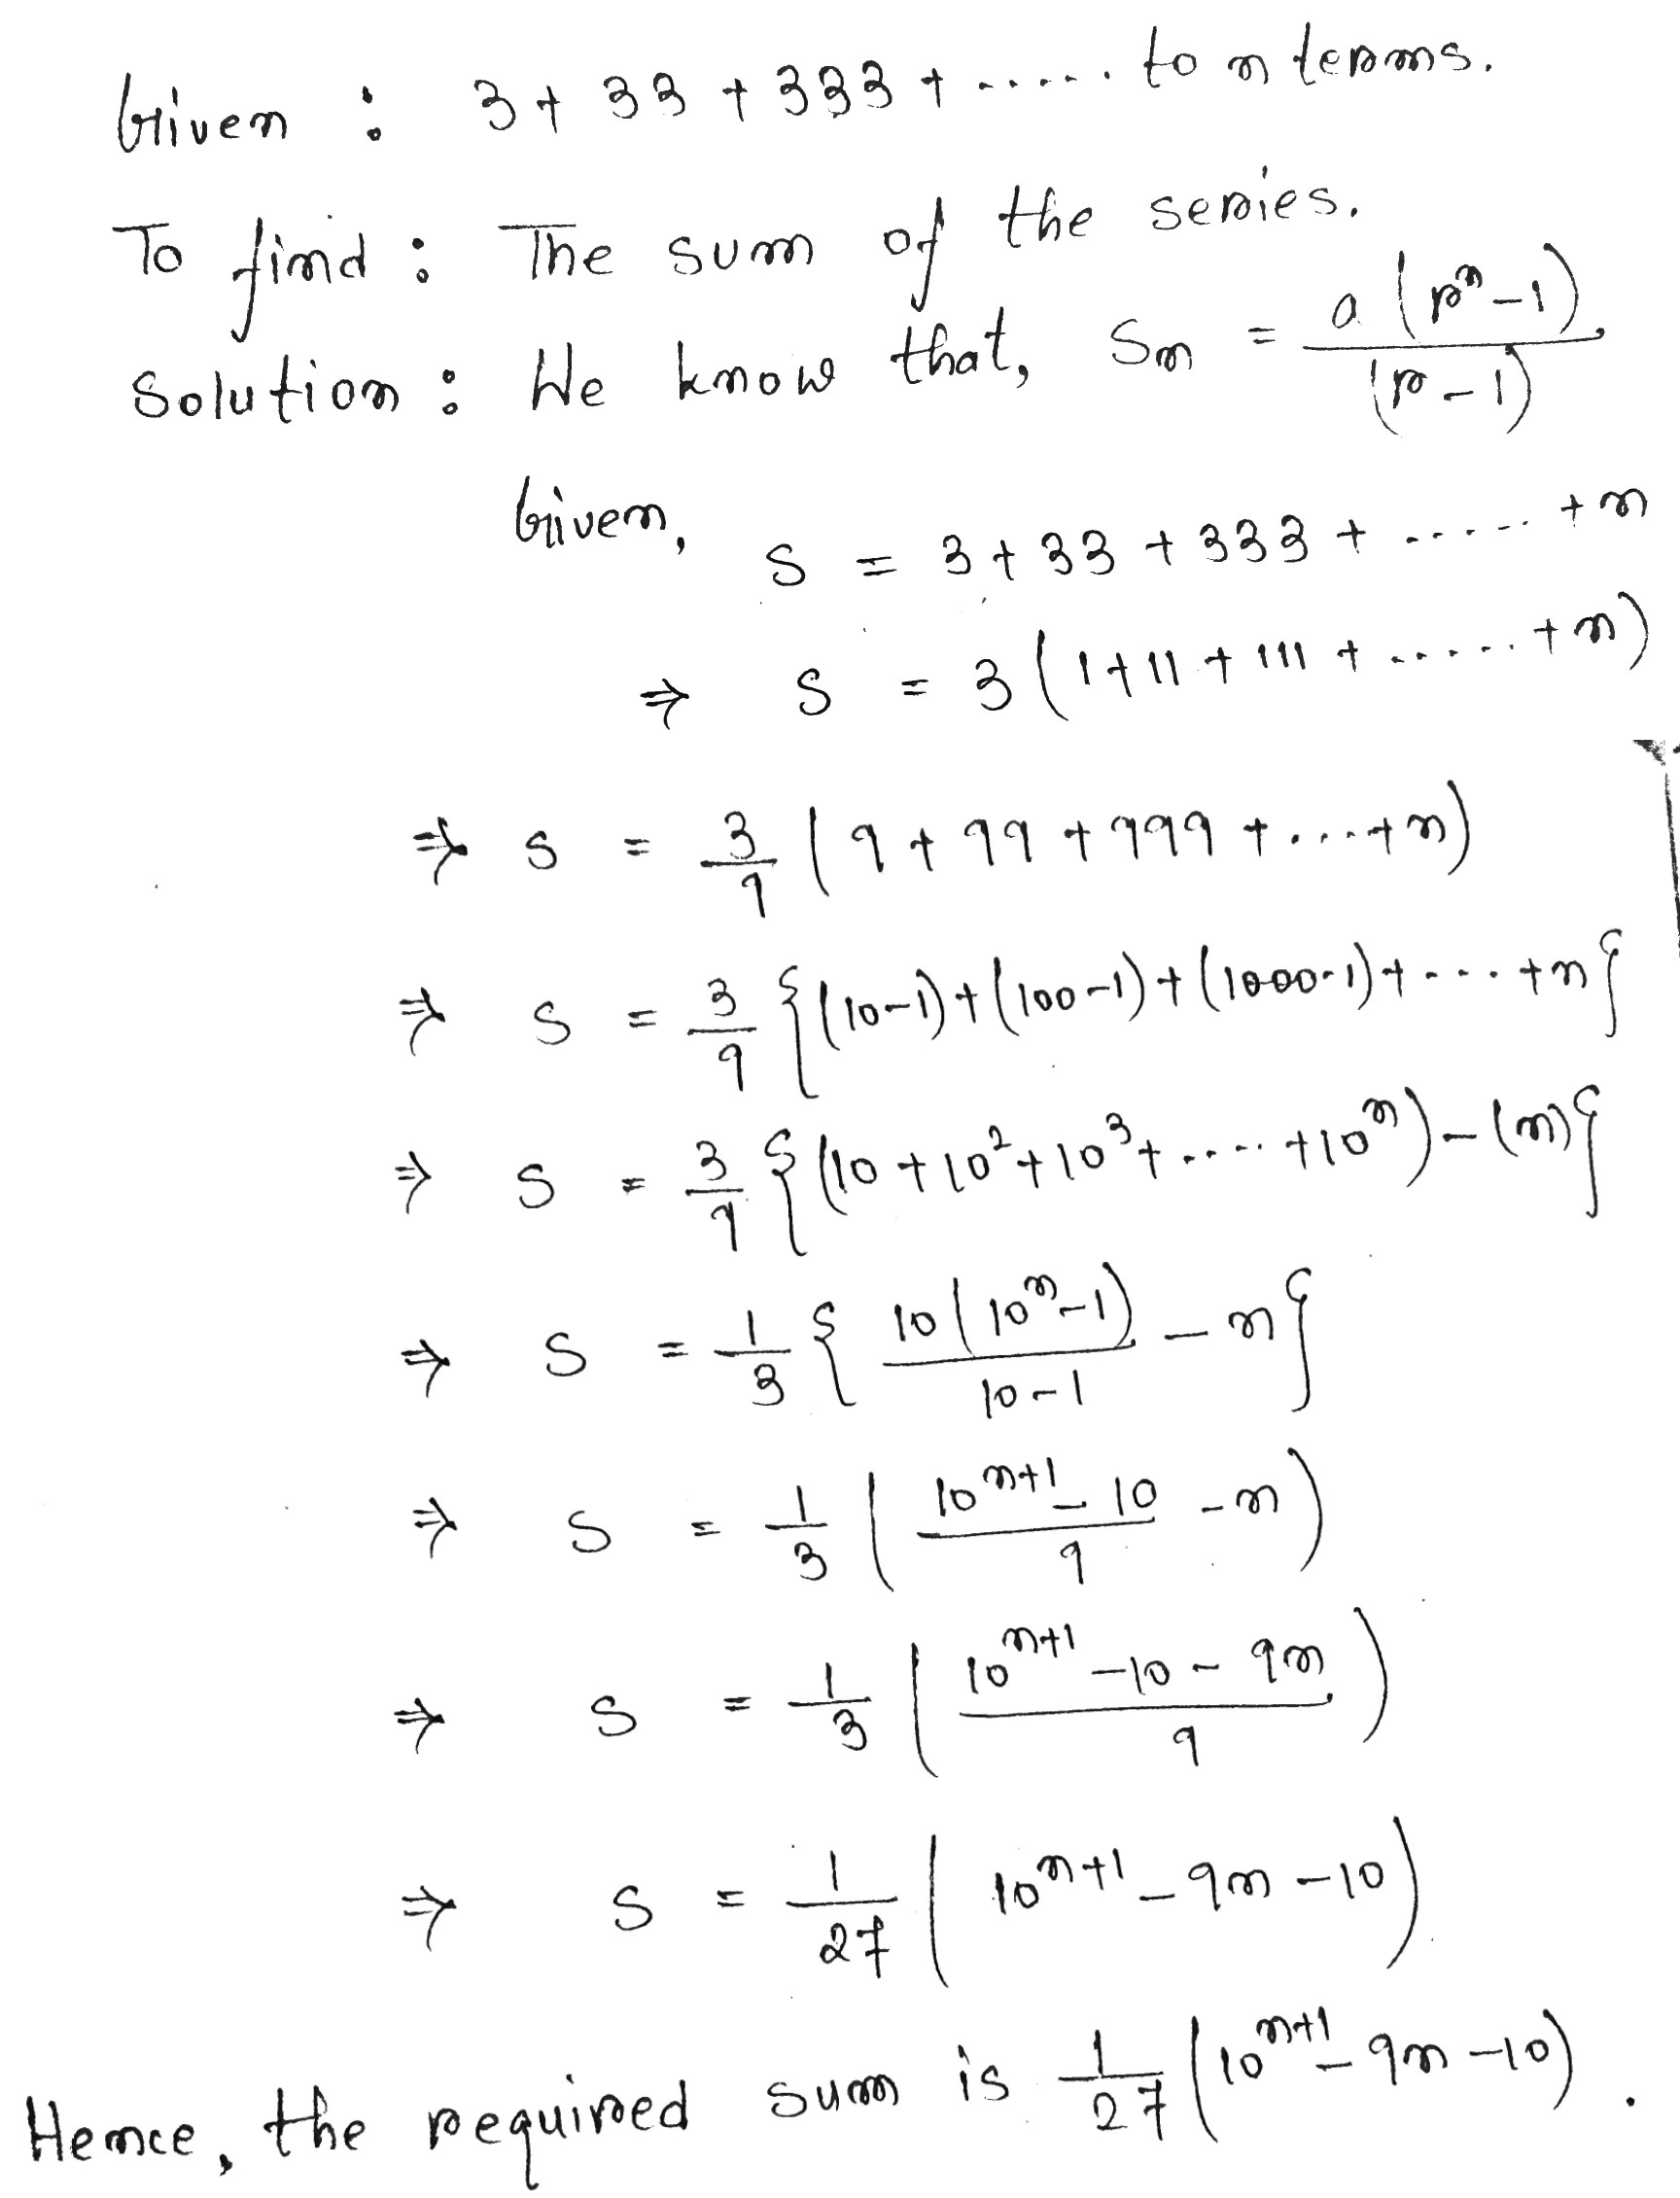 Given : 3 + 33 + 333 + ..... to n terms.
To find : The sum of the series.
Solution : We know that, Sn = a(rⁿ-1)/(r-1)
Given, S = 3 + 33 + 333 + ..... + n
⇒ S = 3(1+11+111+.....+n)
⇒ S = 3/9 (9+99+999+....+n)
⇒ S = 3/9 {(10-1)+(100-1)+(1000-1)+....+n}
⇒ S = 3/9 {(10+10²+10³+.....+10ⁿ)-(n)}
⇒ S = 1/3 {10(10ⁿ-1)/10-1 - n}
⇒ S = 1/3 (10ⁿ⁺¹-10/9 - n)
⇒ S = 1/3 (10ⁿ⁺¹-10-9n/9)
⇒ S = 1/27 (10ⁿ⁺¹-9n-10)
Hence, the required sum is 1/27 (10ⁿ⁺¹-9n-10).